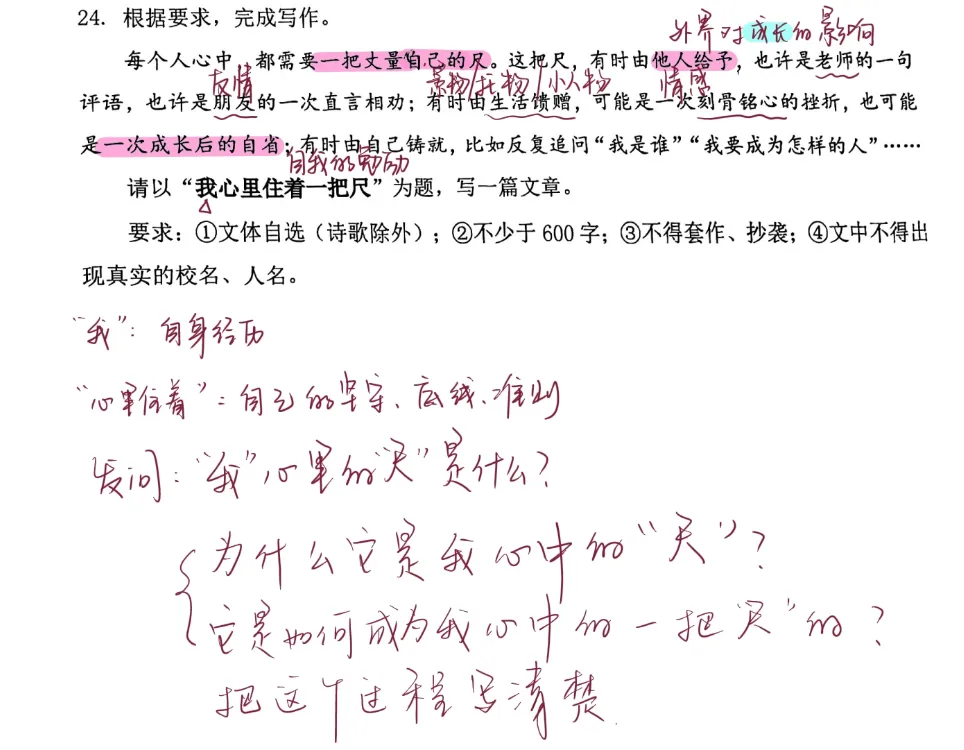 24. 根据要求，完成写作。
外界对成长的影响
每个人心中，都需要一把丈量自己的尺。这把尺，有时由他人给予，也许是老师的一句
友情 景物/托物/小人物 情感
评语，也许是朋友的一次直言相劝；有时由生活馈赠，可能是一次刻骨铭心的挫折，也可能
是一次成长后的自省；有时由自己铸就，比如反复追问“我是谁”“我要成为怎样的人”……
自我的勉励
请以“我心里住着一把尺”为题，写一篇文章。
要求：①文体自选（诗歌除外）；②不少于 600 字；③不得套作、抄袭；④文中不得出
现真实的校名、人名。
“我”：自身经历
“心里住着”：自己的坚守、底线、准则
发问：“我”心里的“尺”是什么？
为什么它是我心中的“尺”？
它是如何成为我心中的一把“尺”的？
把这个过程写清楚.